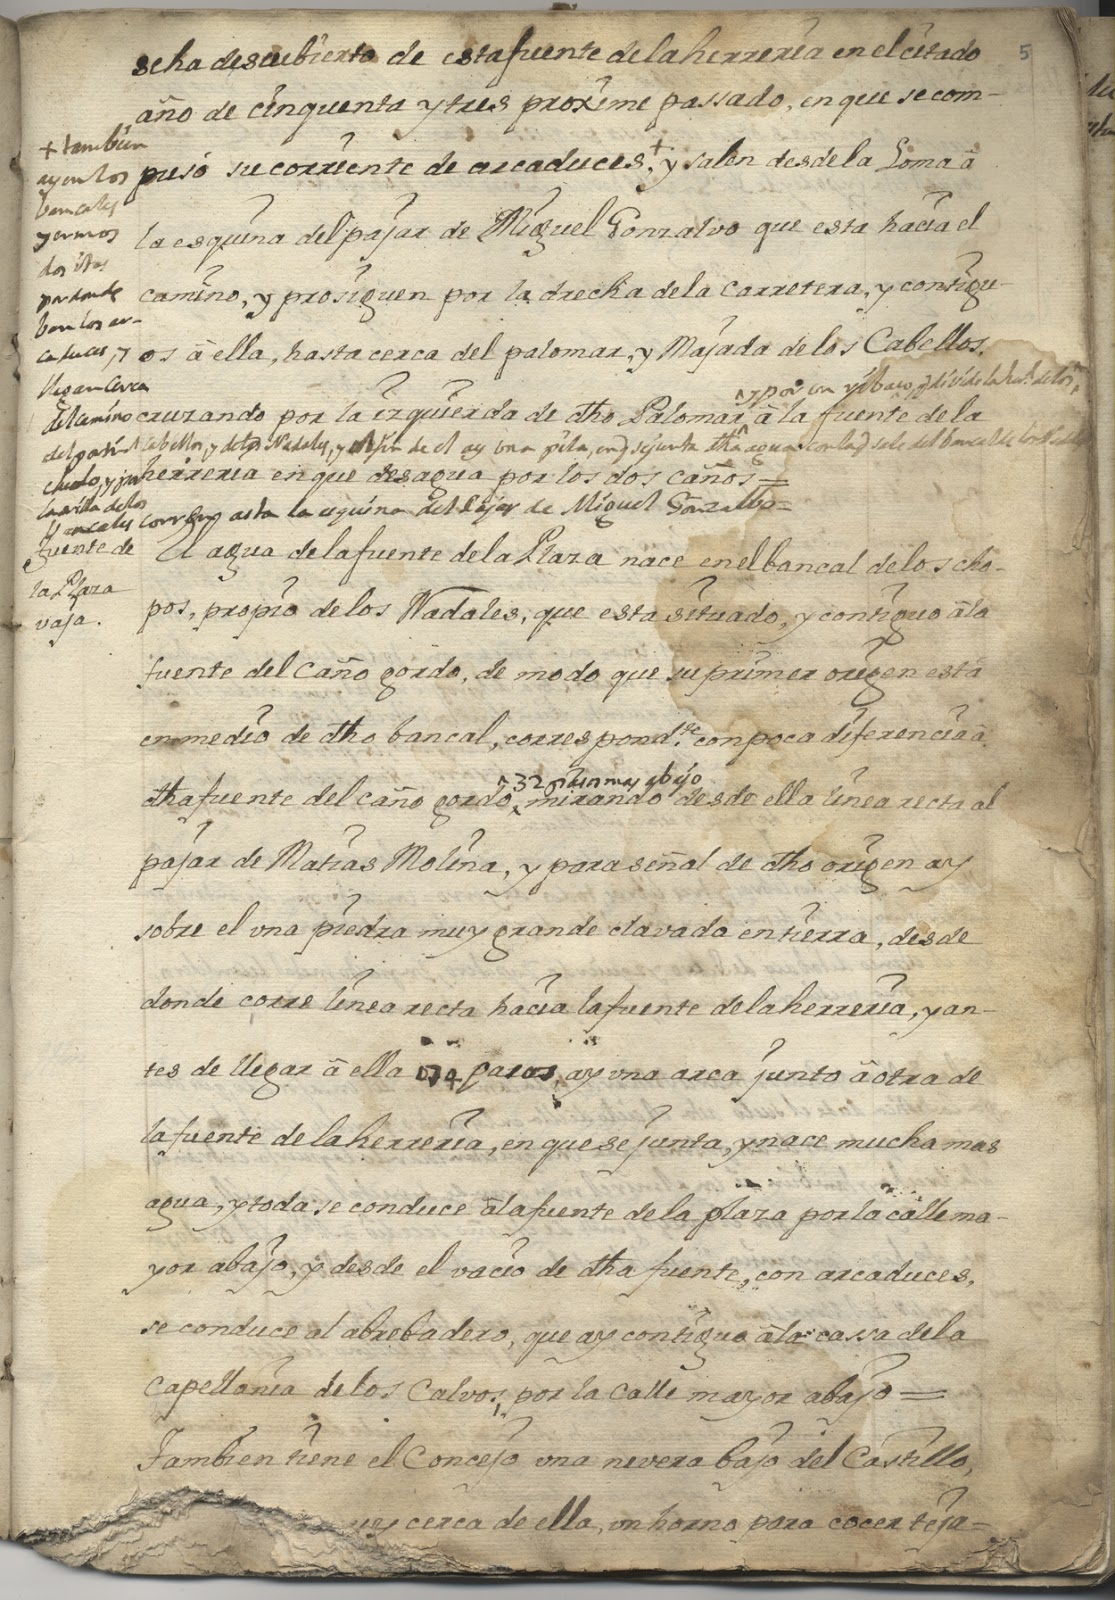 5
se ha descubierto de esta fuente de la herrería en el citado
año de cinquenta y tres proxime passado, en que se com-
pusó su corriente de arcaduces,+ y salen desde la Loma â
la esquina del pajar de Miguel Gonzalvo que esta hacia el
camino, y prosiguen por la drecha de la carretera, y contigu-
os â ella, hasta cerca del palomar, y Majada de los Cabellos,
cruzando por la izquierda de dho Palomar, â la fuente de la
herreria en que desagua por los dos caños=
+ tambien
ay en los
bancales
yermos
por donde
van los ar-
caduces, y
llegan cerca
del camino
corren asta la esquina del Pajar de Miguel Gonzalbo=
fuente de
la Plaza
vaja.
El agua de la fuente de la Plaza nace en el bancal de los cho-
pos, propio de los Nadales, que esta situado, y contiguo â la
fuente del Caño gordo, de modo que su primer origen está
en medio de dho bancal, correspond.se con poca diferencia â
32 mas abajo
dha fuente del caño gordo, mirando desde ella linea recta al
pajar de Matias Molina, y para señal de dho origen ay
sobre el una piedra muy grande clavada en tierra, desde
donde corre linea recta hacia la fuente de la herreria, y an-
tes de llegar â ella 174 pasos, ay una arca junto â otra de
la fuente de la herreria, en que se junta, y nace mucha mas
agua, y toda se conduce â la fuente de la plaza por la calle ma-
yor abajo, y desde el vacio de dha fuente, con arcaduces,
se conduce al abrebadero, que ay contiguo â la cassa de la
Capellania de los Calvos, por la Calle mayor abajo=
Tambien tiene el Concejo una nevera bajo del Castillo,
cerca de ella, un horno para cocer teja=